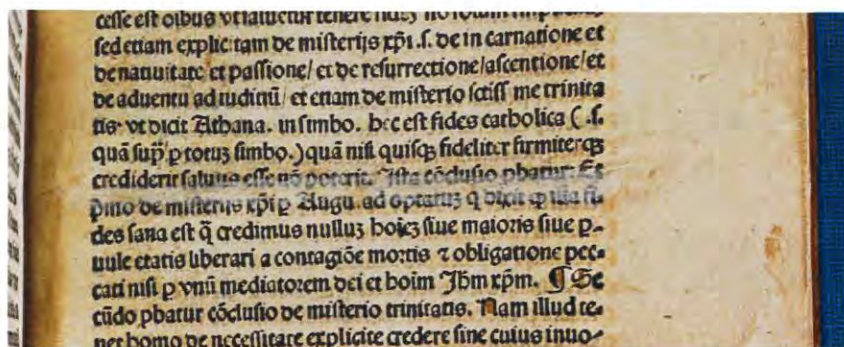 cesse est oibus vt saluētur tenere
sed etiam explicitam de misterijs xp̄i .s. de in carnatione et
de natiuitate et passione / et de resurrectione / ascentione / et
de aduentu ad iudiciū / et etiam de misterio sctīss me trinita
tis· vt dicit Athana. in simbo. hec est fides catholica ( .s.
quā sup̄ ꝑ totuȝ simbo. ) quā nisi quisqȝ fideliter firmiterqȝ
crediderit saluus esse nō poterit. Ista cōclusio ꝓbatur: Et
p̄mo de misterijs xp̄i ꝑ Augu. ad optatuȝ q̄ dixit ꝙ illa fi-
des sana est q̄ credimus nulluȝ hoīeȝ siue maioris siue ꝑ-
uule etatis liberari a contagiōe mortis ⁊ obligatione pec-
cati nisi ꝑ vnū mediatorem dei et hoīm Jhm xp̄m. ¶ Se
cūdo ꝓbatur cōclusio de misterio trinitatis. Nam illud te-
net homo de necessitate explicite credere sine cuius inuo-